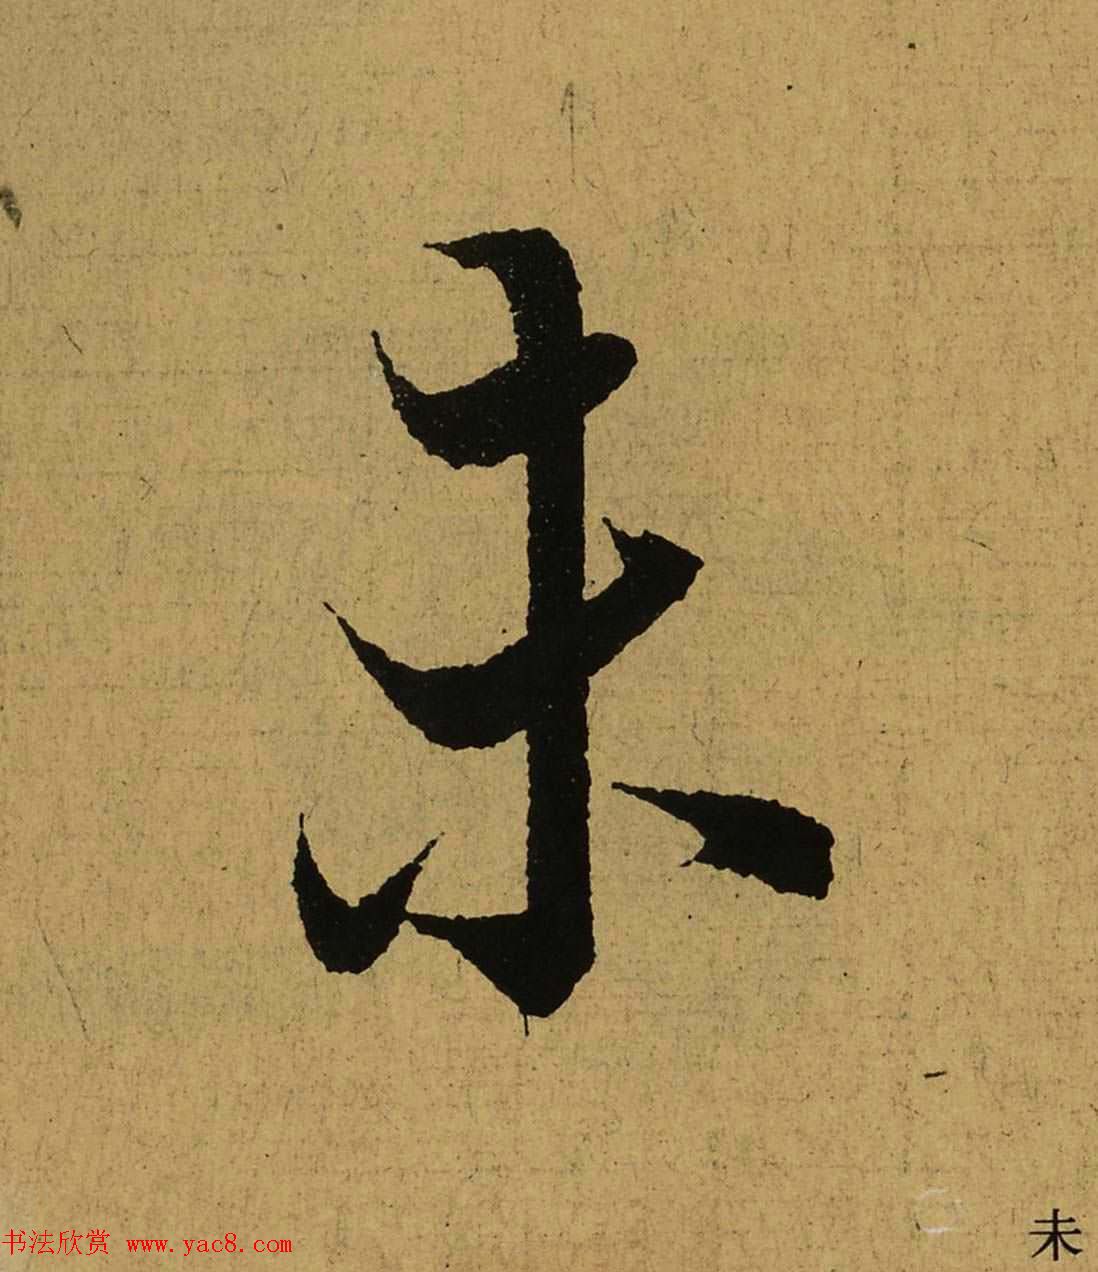 未
未
书法欣赏 www.yac8.com